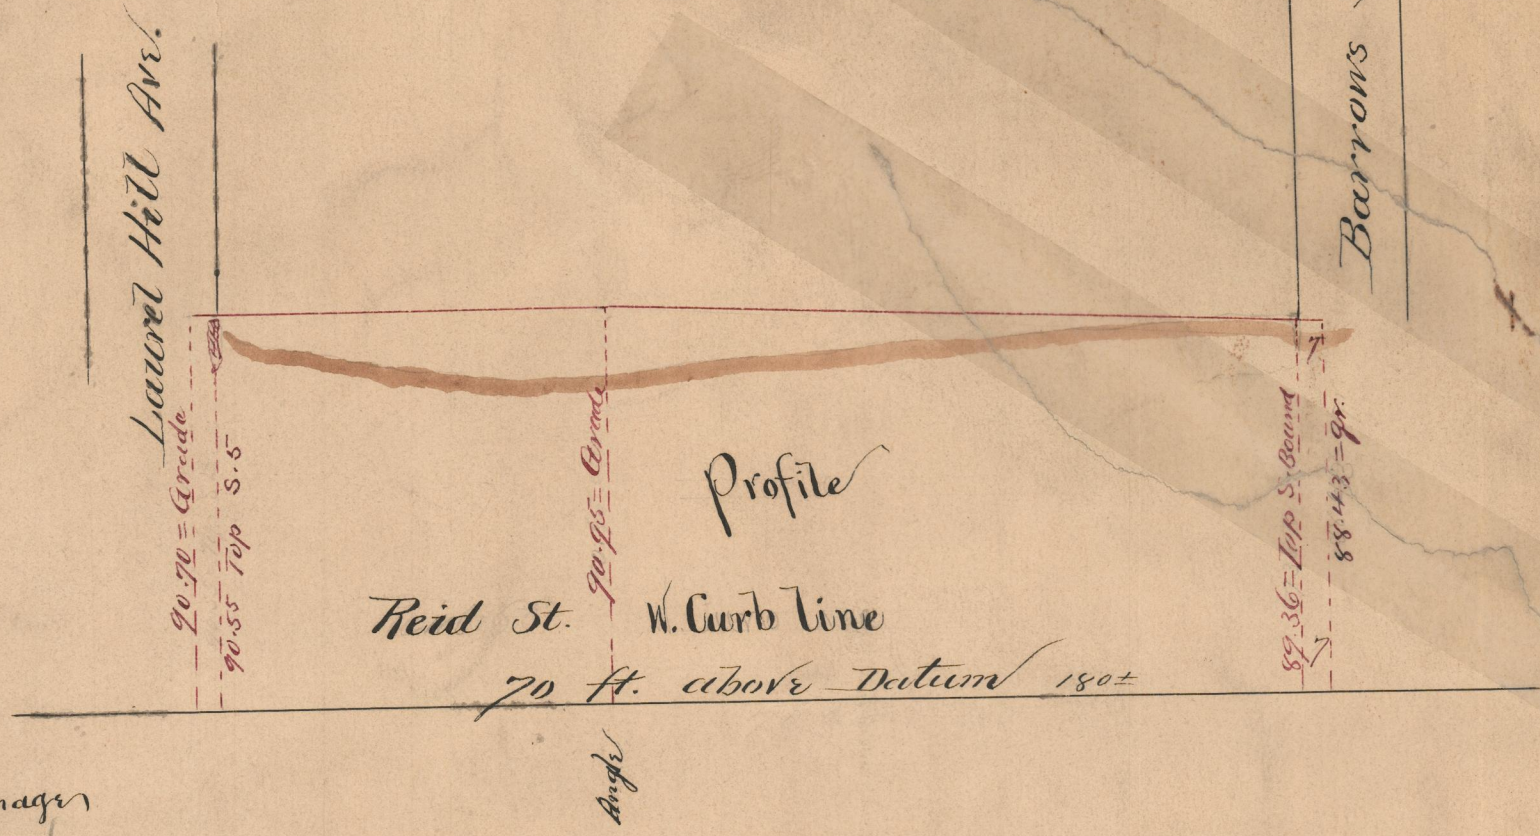 Laurel Hill Ave.
Barrows
90.70 = Grade
90.55 Top S.5
90.95 = Grade
89.36 = Top S. Bound
88.43 = gr.
7
7
Profile
Reid St. W. Curb line
70 ft. above Datum 180±
Angle